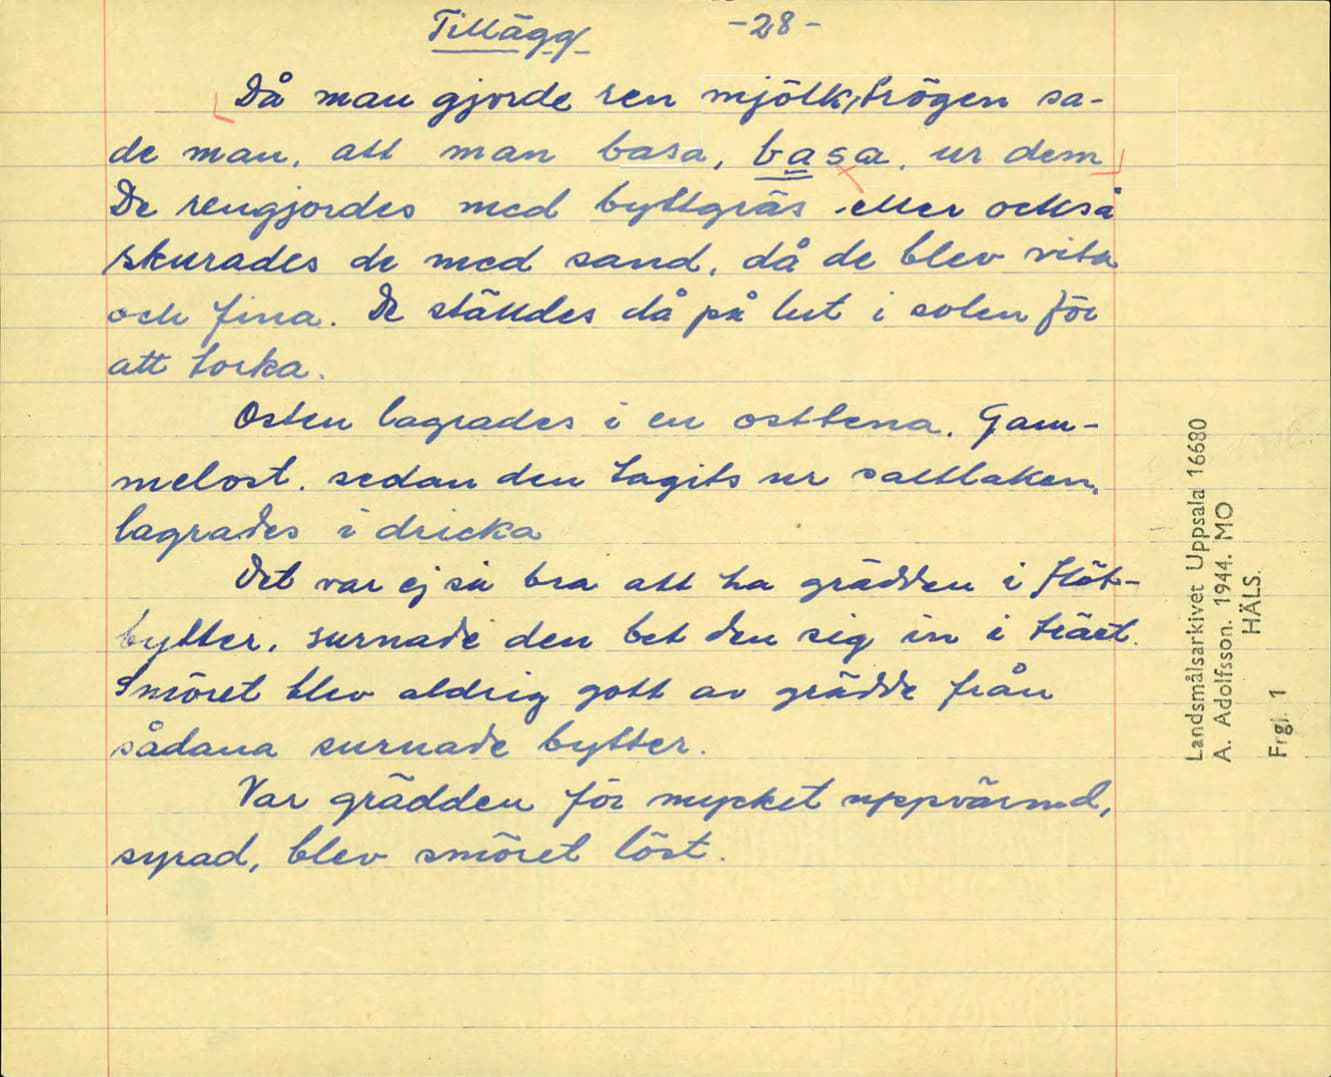 Tillägg -28-
Då man gjorde ren mjölktrögen sa-
de man, att man basa, basa, ur dem
De rengjordes med byttgräs eller också
skurades de med sand, då de blev vita
och fina. De ställdes då på lut i solen för
att torka.
Osten lagrades i en osttena. Gam-
melost, sedan den tagits ur saltlaken,
lagrades i dricka
Det var ej så bra att ha grädden i flöt-
bytter, surnade den bet den sig in i träet.
Smöret blev aldrig gott av grädde från
sådana surnade bytter.
Var grädden för mycket uppvärmd,
syrad, blev smöret löst.
Landsmålsarkivet Uppsala 16680
A. Adolfsson. 1944. MO
HÄLS.
Frgl. 1